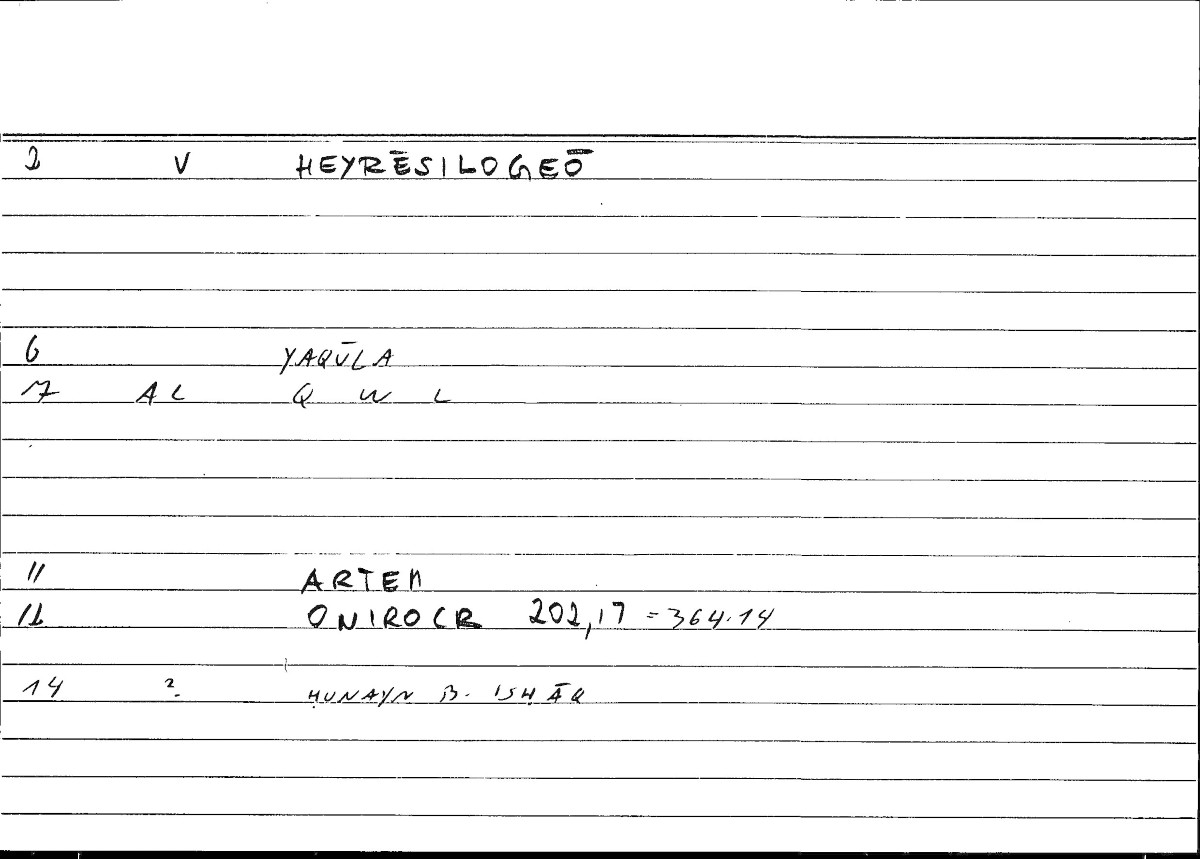 2 V HEYRĒSILOGEŌ
6 YAQŪLA
7 AL Q W L
11 ARTEM
12 ONIROCR 202,17 = 364.14
14 2. ḤUNAYN B. ISḤĀQ